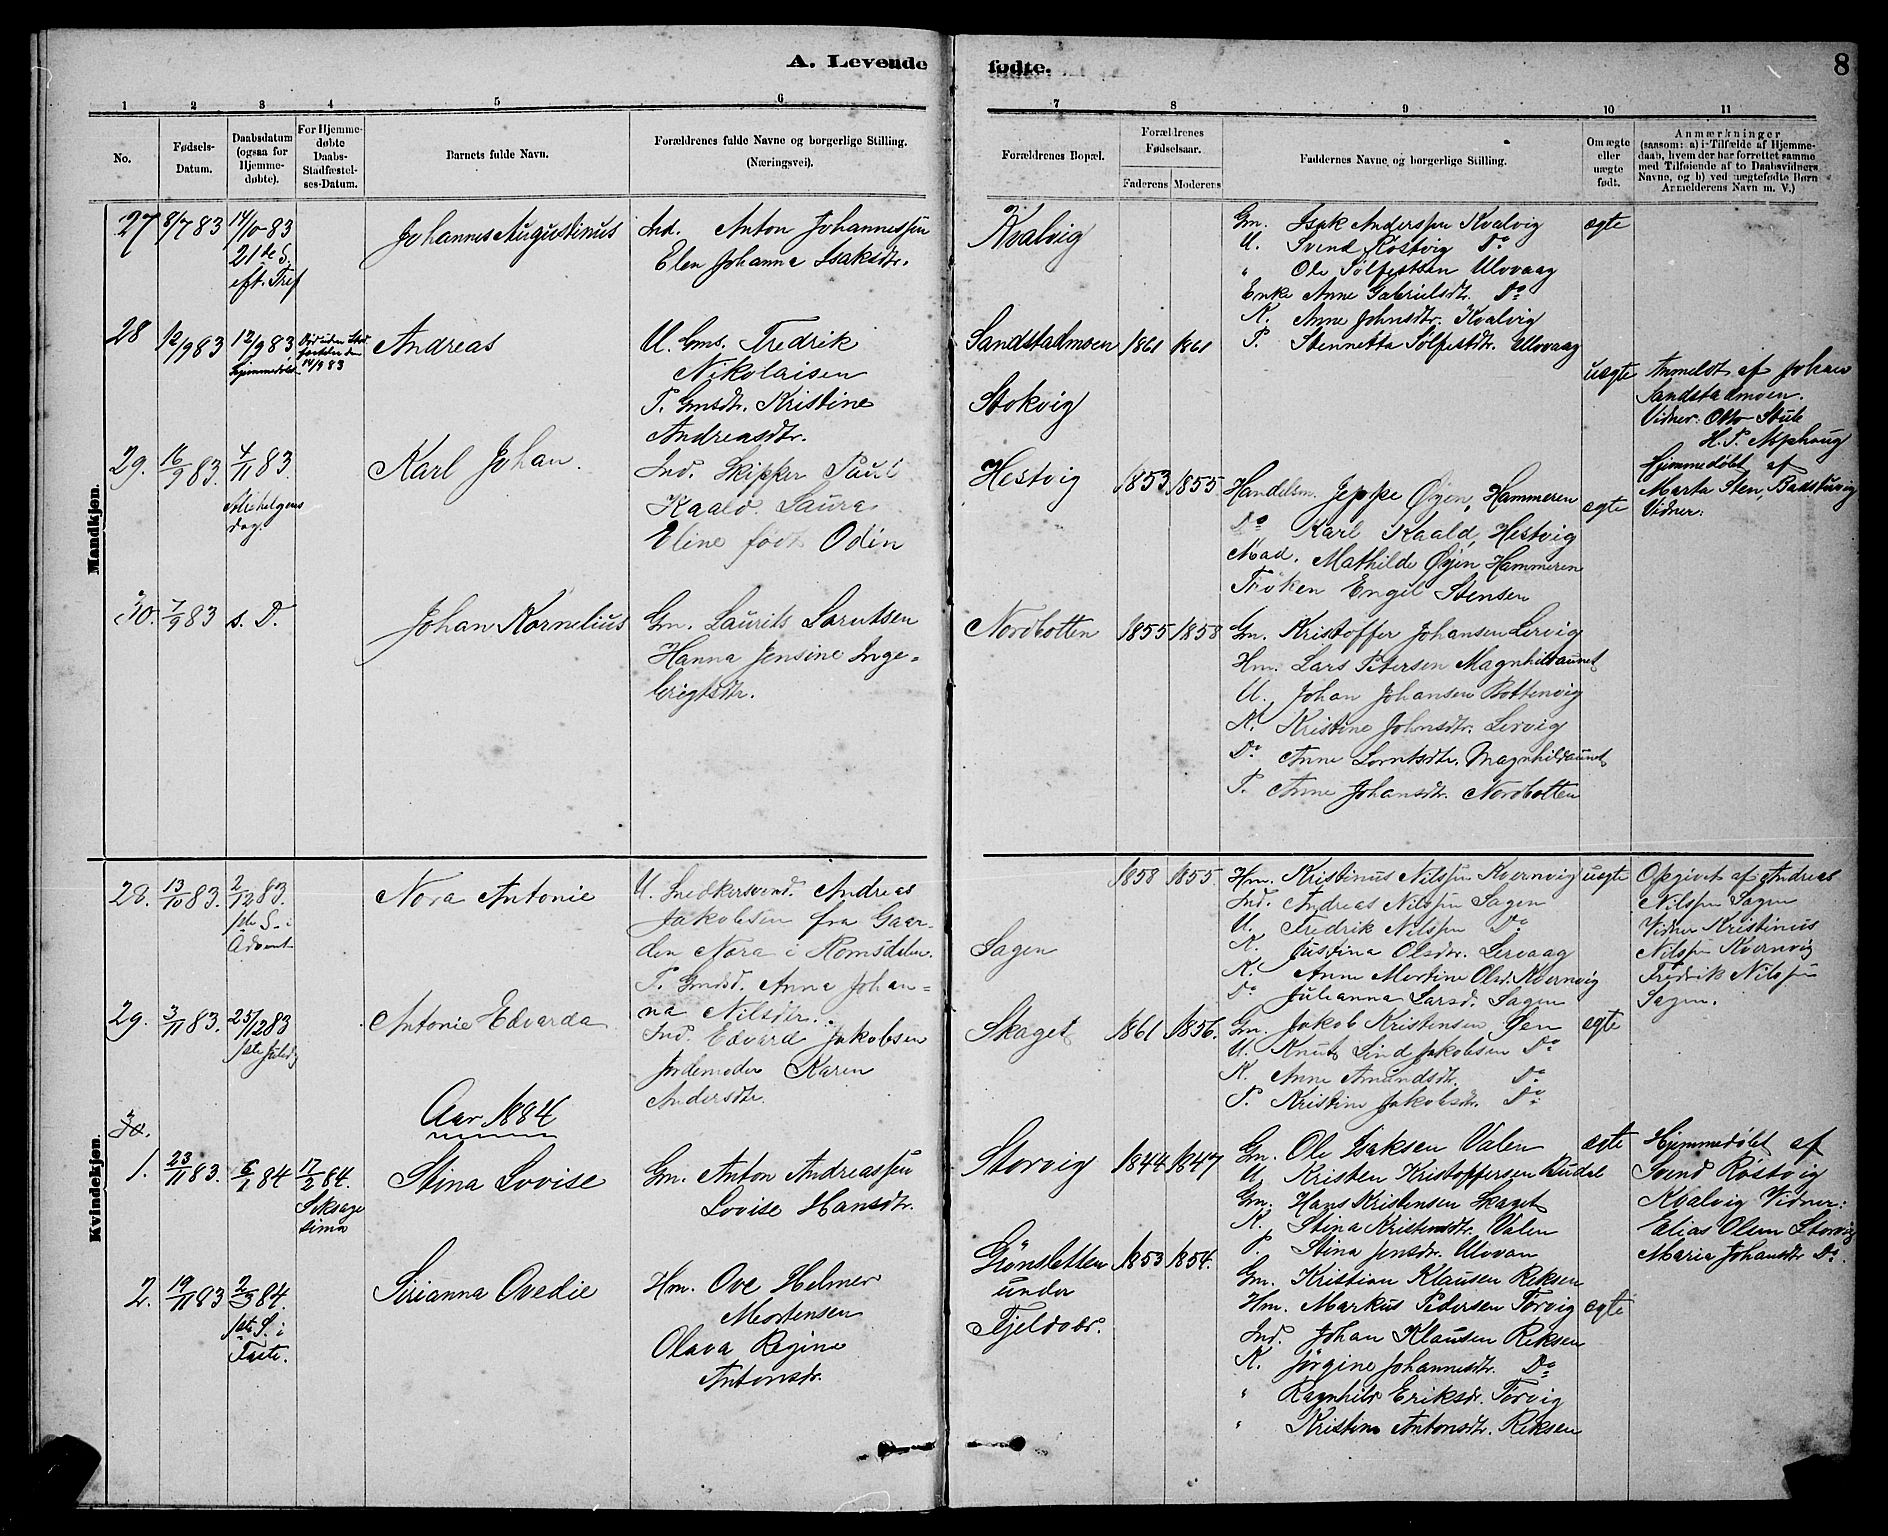 A. Levende fødte. 8
1 2 3 4 5 6 7 8 9 10 11
No.
Fødsels-Datum.
Daabsdatum (ogsaa for Hjemme-døbte).
For Hjemme-døbte Daabs-Stadfæstel-ses-Datum.
Barnets fulde Navn.
Forældrenes fulde Navne og borgerlige Stilling.
(Næringsvei).
Forældrenes Bopæl.
Forældrenes Fødselsaar.
Faderens Moderens
Faddernes Navne og borgerlige Stilling.
Om ægte eller uægte født.
Anmærkninger
(saasom: a) i Tilfælde af Hjemme-
daab, hvem der har forrettet samme
med Tilføiende af to Daabsvidners
Navne, og b) ved uægtefødte Børn
Anmelderens Navn m. V.)
Mandkjøn.
27 8/7 83 14/10 83
21de S.
eft. Tref
Johannes Augustinus
Ind. Anton Johannessen
Elen Johanna Isaksdtr.
Kvalvig
Gm. Isak Anderssen Kvalvig
U. Svend Røstvig Do
" Ole Sølfestsen Ulvvaag
Enke Anne Gabrielsdtr. Do
K. Anne Johnsdtr. Kvalvig
P. Stennetta Sølfestdtr. Ulvvaag
ægte
28 12/9 83 12/9 83
Hjemmedøbt
14/9 83
Andreas
U. Gms. Fredrik
Nikolaisen
P. Gmsdtr. Kristine
Andreasdtr.
Sandstadmoen 1861 1861
Stokvig
uægte
Anmeldt af Johan
Sandstadmoen.
Vidner: Otto Stub
H. P. Asphaug
29. 16/9 83. 4/11 83.
Allehelgens
dag.
Karl Johan.
Ind. Skipper Paul
Kaald. Laura
Eline født Odin
Hestvig 1853 1855
Handelsm. Jeppe Øyen, Hammeren
Do Karl Kaald, Hestvig
Mad. Mathilde Øyen Hammeren
Frøken Engel Stensen
ægte
Hjemmedøbt af
Marta Sten, Badstuvig
Vidner:
30. 7/9 83 s. D.
Johan Kornelius
Gm. Laurits Lorntsen
Hanna Jensine Inge-
brigtsdtr.
Nordbotten 1855 1858
Gm. Kristoffer Johansen Lervig
Hm. Lars Petersen Magnhildaunet
U. Johan Johansen Bottenvig
K. Kristine Johnsdtr. Lervig
Do Anne Lorntsdtr. Magnhildaunet
P. Anne Johansdtr. Nordbotten
Kvindekjøn.
28. 13/10 83. 2/12 83.
1ste S. i
Advent
Nora Antonie
U. Snedkersvend. Andreas
Jakobsen fra Gaar-
den Nora i Romsdalen.
P. Gmsd. Anna Johan-
na Nilsdtr.
Sagen
1858 1855.
Hm. Kristinus Nilssen Kvernvig
Ind. Andreas Nilssen Sagen
U. Fredrik Nilssen Do
K. Justina Olsdtr. Lervaag
K. Anne Martine Olsd. Kvernvig
Do Julianna Larsd. Sagen
uægte
Opgivet af Andreas
Nilssen Sagen
Vidner Kristinus
Nilssen Kvernvig
Fredrik Nilssen
Sagen.
29. 3/11 83. 25/12 83
1ste Juledg
Antonie Edvarda
Ind. Edvard Jakobsen
Jordemoder Karen
Andersdtr.
Skaget 1861 1856.
Gm. Jakob Kristensen Øen
U. Knut Lind Jakobsen Do
K. Anne Amundsdtr. Do
P. Kristine Jakobsdtr. Do
ægte
30.
Aar 1884
1. 23/11 83. 6/1 84 17/2 84.
Seksage
sima
Stina Lovise
Gm. Anton Andreassen
Lovise Hansdtr.
Storvig 1844 1847
Gm. Ole Isaksen Valen
U. Kristen Kristoffersen Rudal
Gm. Hans Kristensen Skaget
K. Stina Kristensdtr. Valen
P. Stina Jensdtr. Ulovan
ægte
Hjemmedøbt af
Svend Røstvig
Kvalvig Vidner:
Elias Olsen Storvig
Maria Johansdtr Do
2. 19/11 83 2/3 84.
1ste S. i
Faste.
Sirianna Ovedie
Hm. Ove Helmer
Mortensen
Olava Regine
Antonsdr.
Grønsletten
under
Fjeldvær.
1853 1854.
Gm. Kristian Klausen Reksen
Hm. Markus Pedersen Torvig
Ind. Johan Klausen Reksen
K. Jørgine Johannesdtr. Do
" Ragnhild Eriksdr. Torvig
" Kristine Antonsdtr. Reksen
ægte